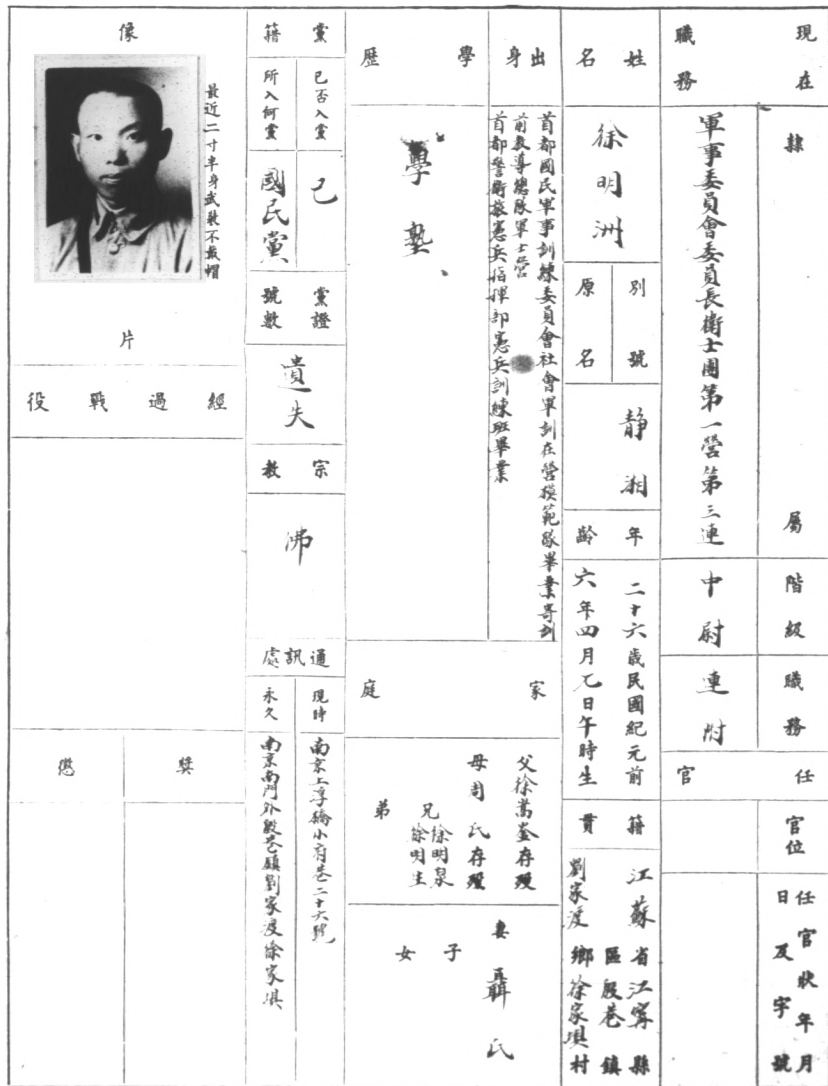 現在職務
隸屬
軍事委員會委員長衛士團第一營第三連
階級
中尉
職務
連附
任官
官位
任官狀年月日及字號
姓名
徐明洲
別號
原名
靜湘
年齡
二十六歲民國紀元前
六年四月七日午時生
籍貫
江蘇省江寧縣
區殷巷鎮
劉家渡鄉徐家垻村
出身
首都國民軍事訓練委員會社會軍訓在營模範隊畢業寄訓
前教導總隊軍士營
首都警衛旅憲兵指揮部憲兵訓練班畢業
學歷
學塾
家庭
父徐嵩崟存歿
母周氏存歿
兄徐明泉
弟徐明生
妻聶氏
子
女
黨籍
已否入黨
已
所入何黨
國民黨
黨證號數
遺失
宗教
佛
通訊處
現時
南京上浮橋小府巷二十六號
永久
南京南門外殷巷鎮劉家渡徐家垻
像片
最近二寸半身武裝不戴帽
經過戰役
獎
懲